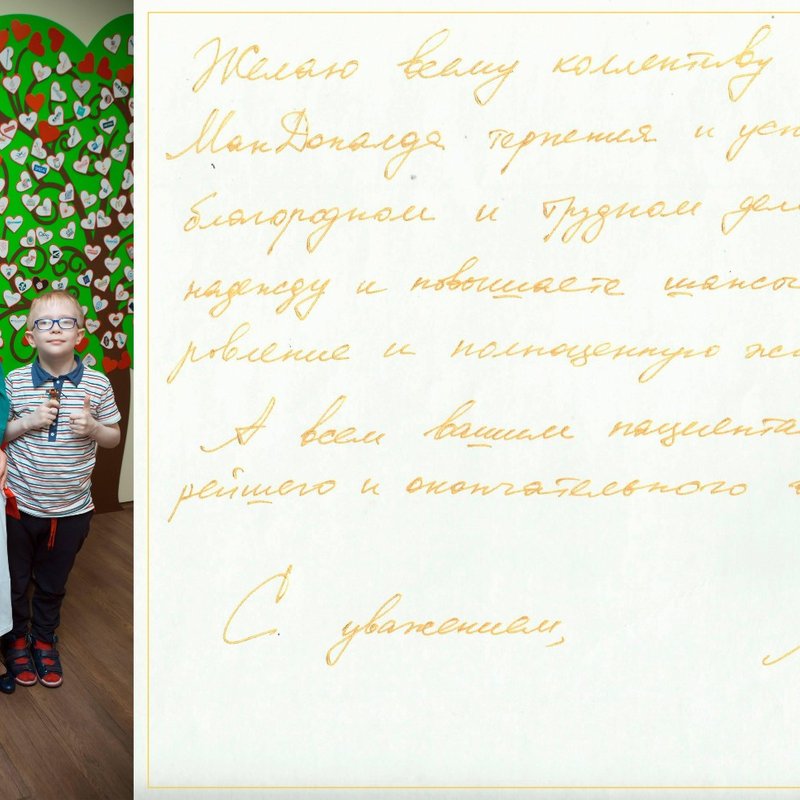 Желаю всему коллективу
МакДоналда терпения и усп
благородном и трудном дел
надежду и повышаете шансы
ровление и полноценную жи
А всем вашим пациента
рейшего и окончательного в
С уважением,